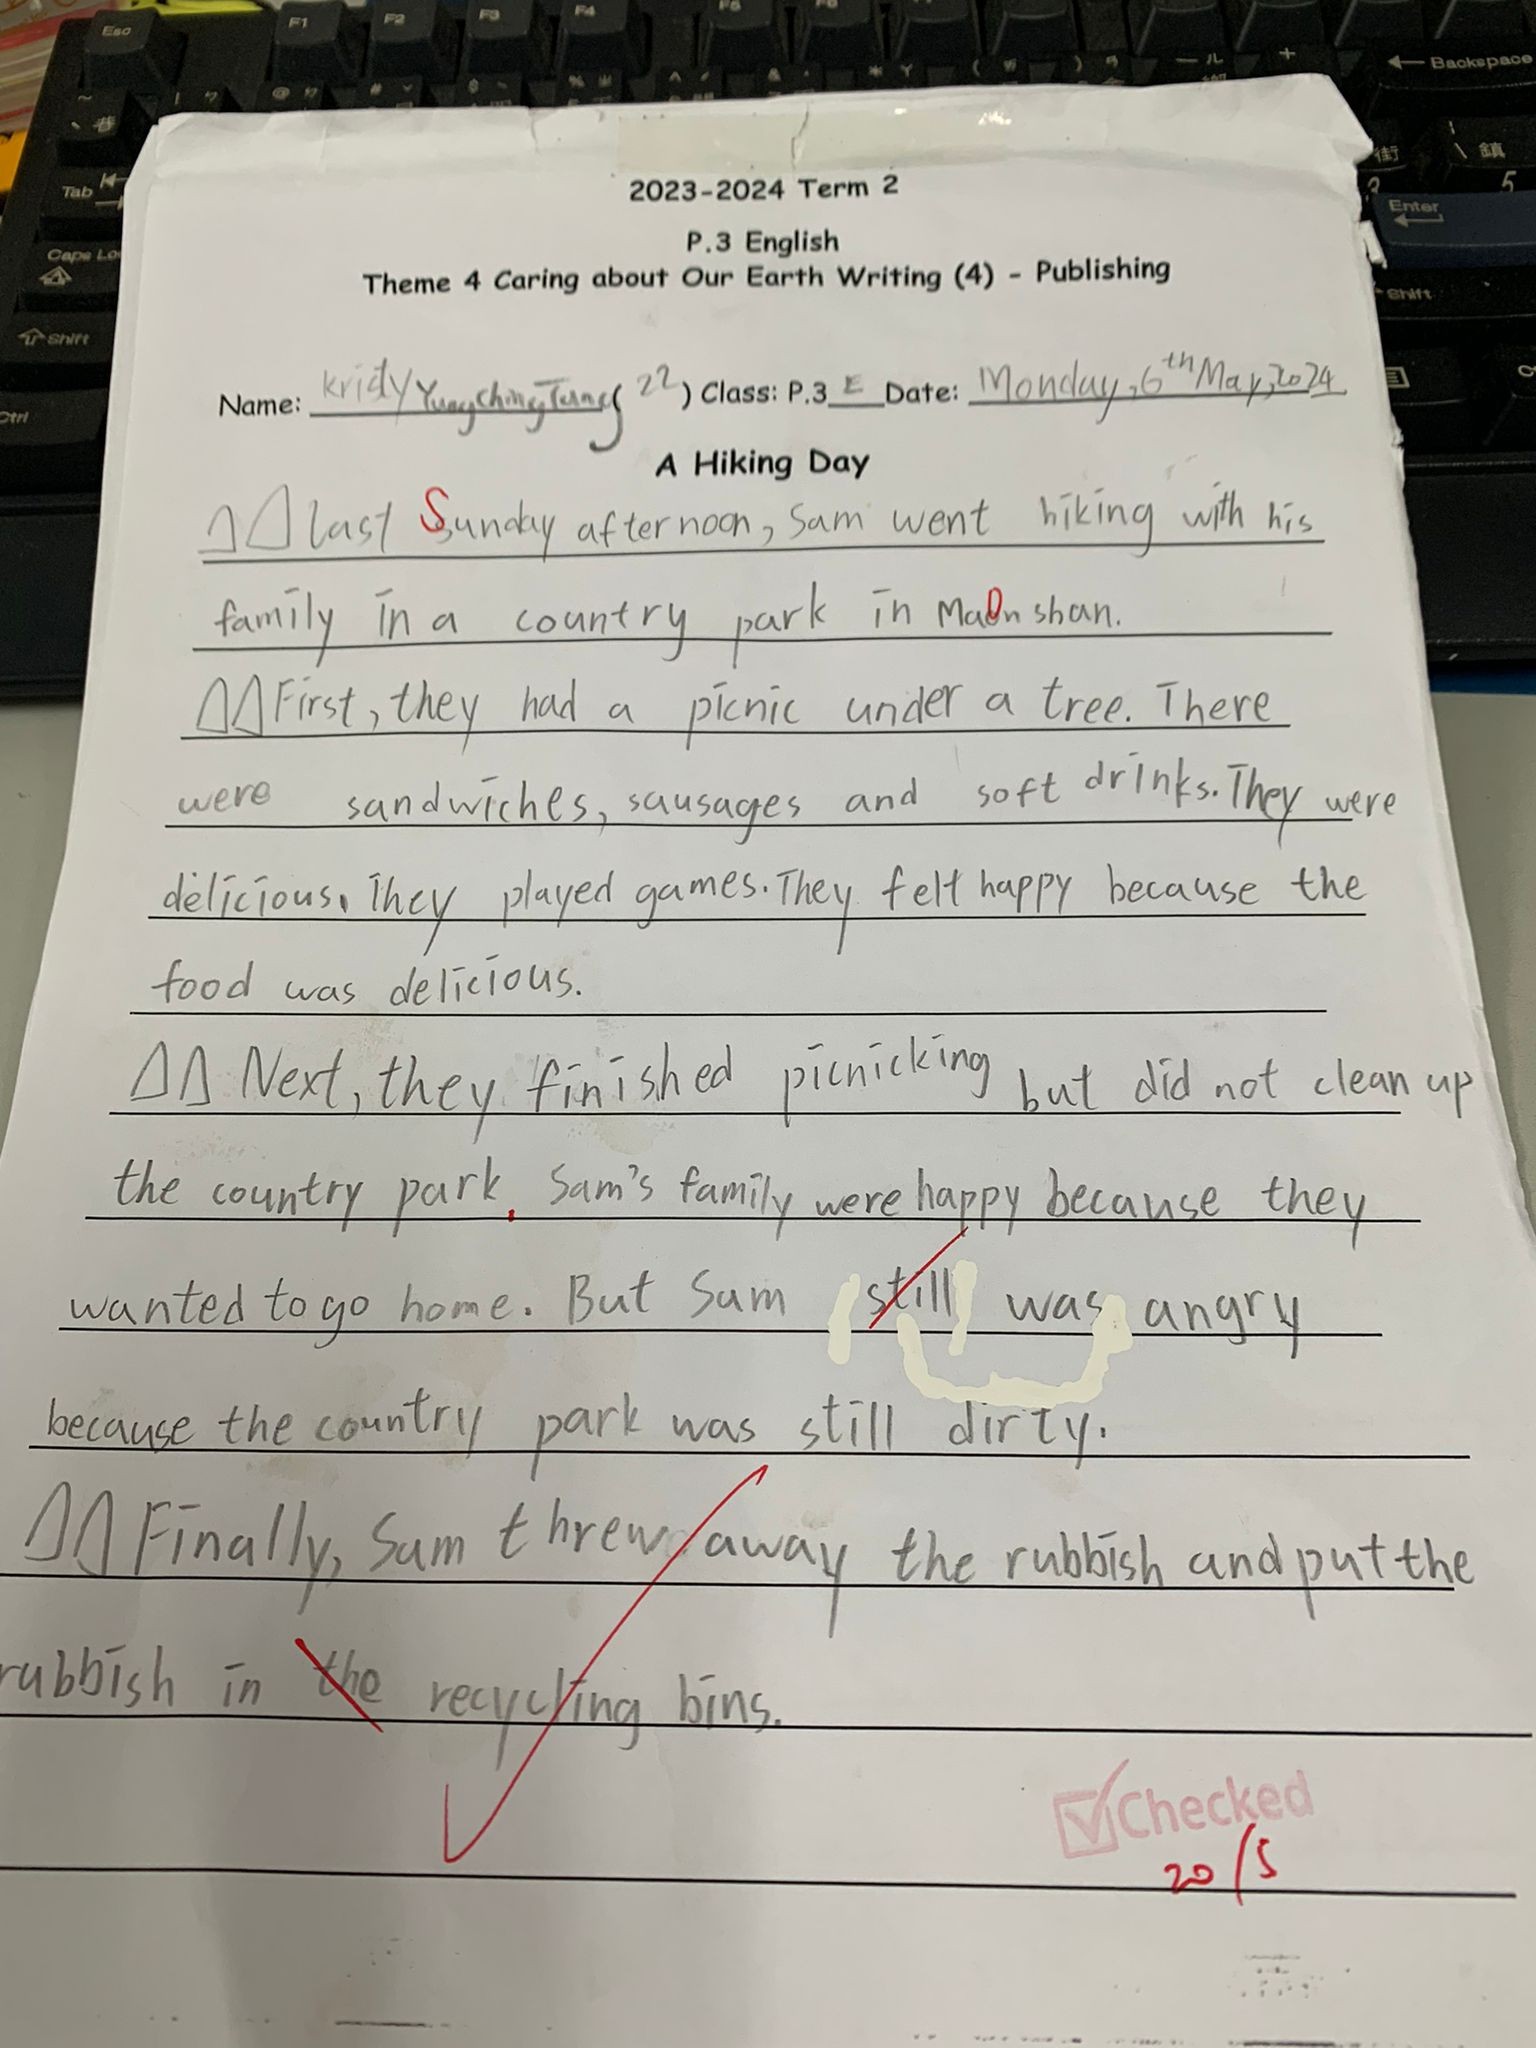 2023-2024 Term 2
P.3 English
Theme 4 Caring about Our Earth Writing (4) - Publishing
Name: Kristy Yung Ching Tung (22) Class: P.3 E Date: Monday, 6th May, 2024
A Hiking Day
last Sunday afternoon, Sam went hiking with his
family in a country park in MaOn shan.
First, they had a picnic under a tree. There
were sandwiches, sausages and soft drinks. They were
delicious. They played games. They felt happy because the
food was delicious.
Next, they finished picnicking but did not clean up
the country park. Sam's family were happy because they
wanted to go home. But Sam still was angry
because the country park was still dirty.
Finally, Sam threw away the rubbish and put the
rubbish in the recycling bins.
Checked
20/5
Esc F1 F2 F3 F4
Backspace
Tab
Enter
Caps Lo
Shift
Shift
Ctrl